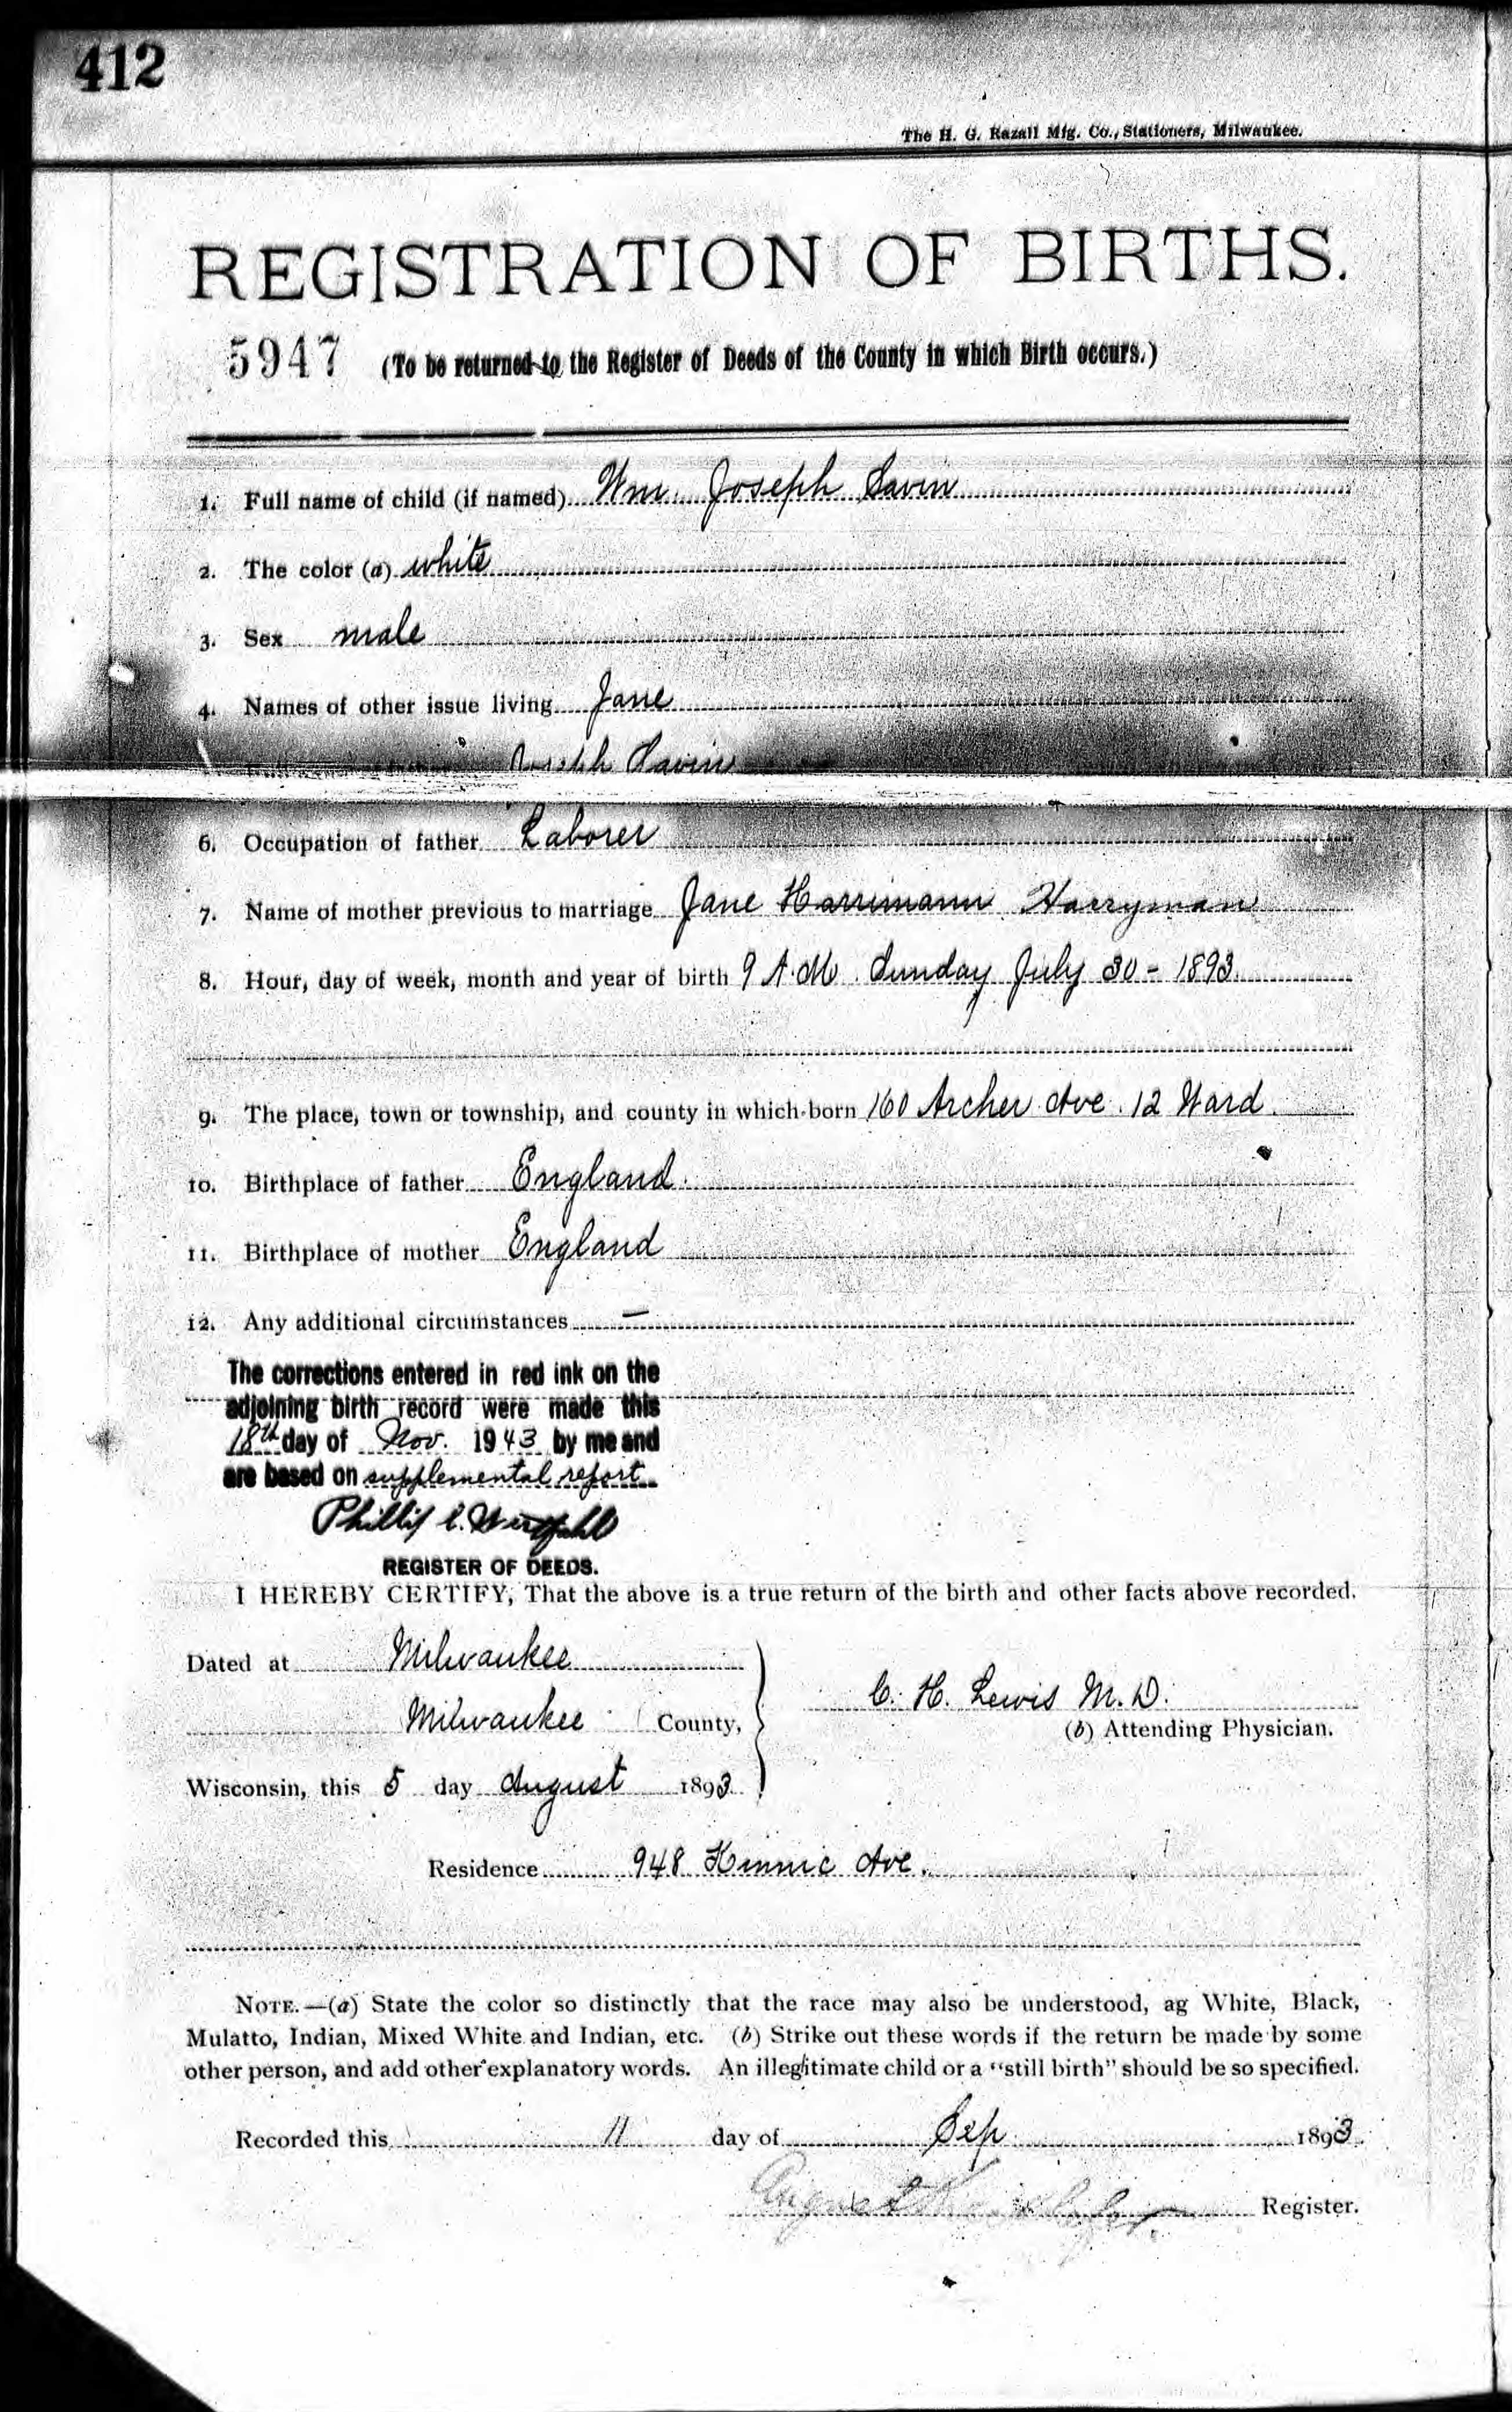 412
The H. G. Razall Mfg. Co., Stationers, Milwaukee.
REGISTRATION OF BIRTHS.
5947 (To be returned to the Register of Deeds of the County in which Birth occurs.)
1. Full name of child (if named) Wm. Joseph Savin
2. The color (a) white
3. Sex male
4. Names of other issue living Jane
Joseph Savin
6. Occupation of father Laborer
7. Name of mother previous to marriage Jane Harrimann Harryman
8. Hour, day of week, month and year of birth 9 A.M. Sunday July 30 - 1893.
9. The place, town or township, and county in which born 160 Archer Ave. 12 Ward.
10. Birthplace of father England.
11. Birthplace of mother England
12. Any additional circumstances —
The corrections entered in red ink on the
adjoining birth record were made this
18th day of Nov. 1943 by me and
are based on supplemental report
Phillip C.
REGISTER OF DEEDS.
I HEREBY CERTIFY, That the above is a true return of the birth and other facts above recorded.
Dated at Milwaukee
Milwaukee County,
C. H. Lewis M.D.
(b) Attending Physician.
Wisconsin, this 5 day August 1893.
Residence 948 Kinnic Ave.
NOTE.—(a) State the color so distinctly that the race may also be understood, ag White, Black,
Mulatto, Indian, Mixed White and Indian, etc. (b) Strike out these words if the return be made by some
other person, and add other explanatory words. An illegitimate child or a "still birth" should be so specified.
Recorded this 11 day of Sep 1893.
August Register.